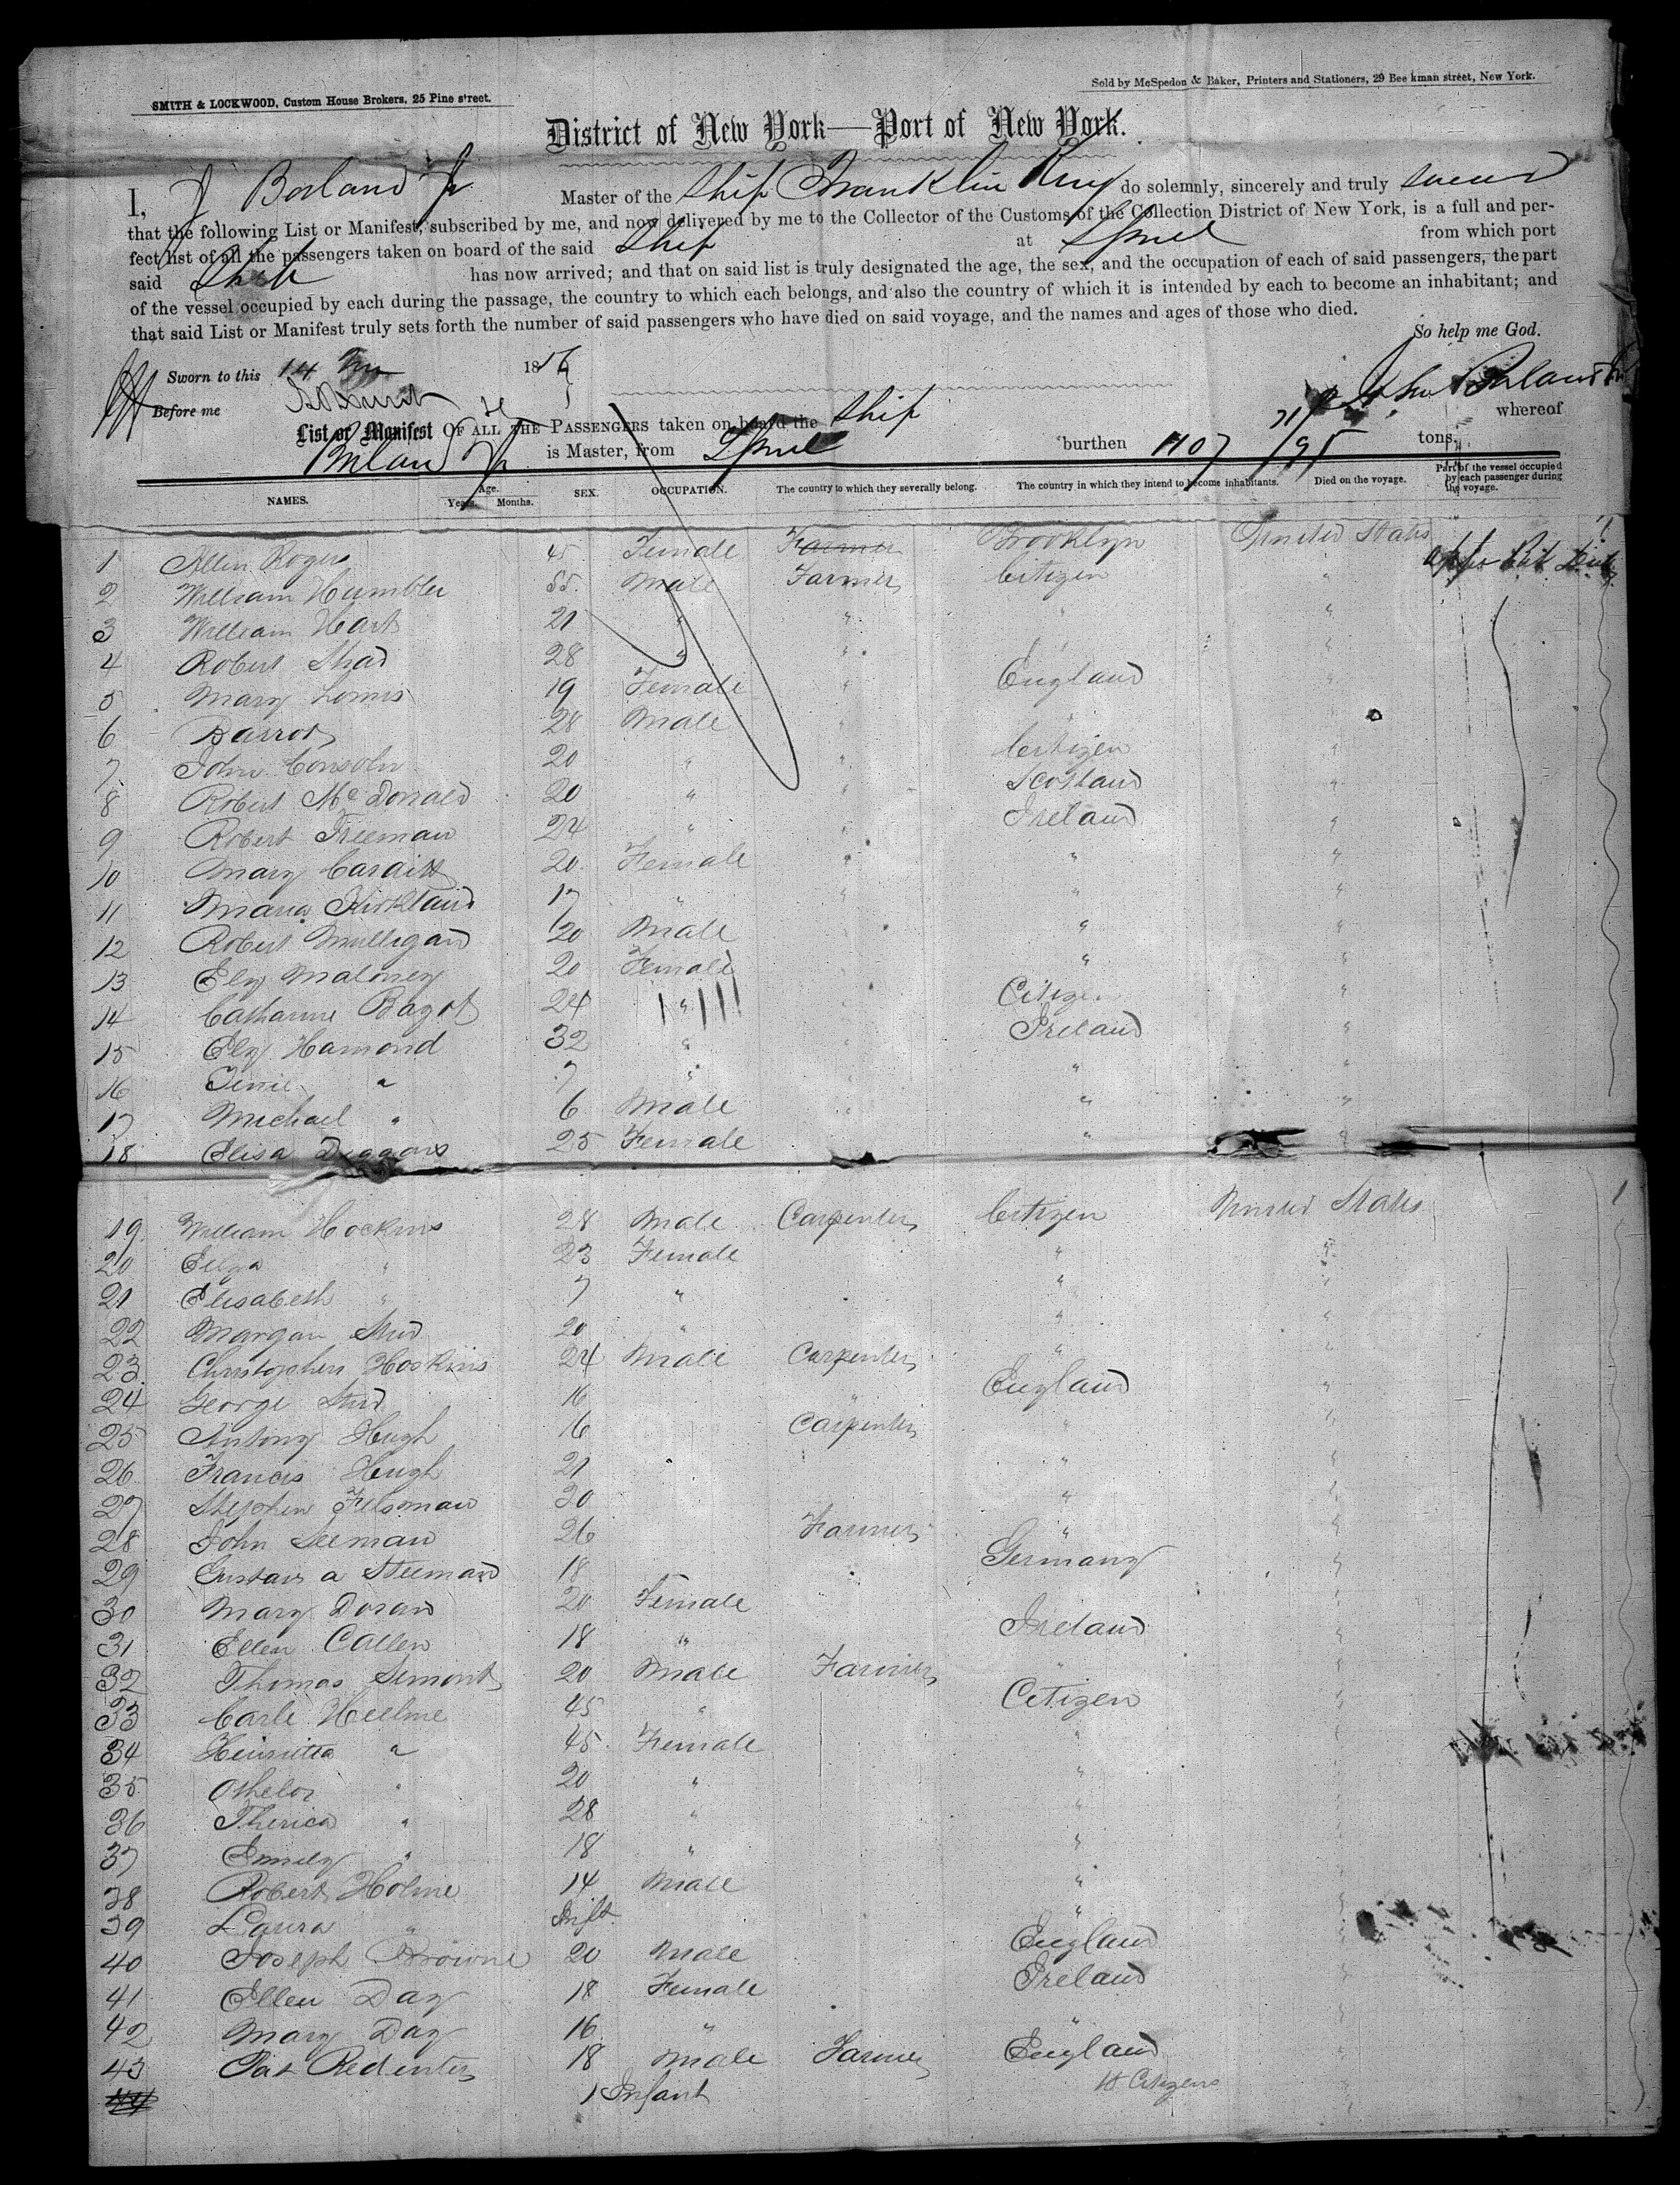 SMITH & LOCKWOOD, Custom House Brokers, 25 Pine street.
Sold by McSpedon & Baker, Printers and Stationers, 29 Beekman street, New York.
District of New York—Port of New York.
I, J Borland Jr Master of the Ship Franklin King do solemnly, sincerely and truly swear
that the following List or Manifest, subscribed by me, and now delivered by me to the Collector of the Customs of the Collection District of New York, is a full and per-
fect list of all the passengers taken on board of the said Ship at Lpool from which port
said Ship has now arrived; and that on said list is truly designated the age, the sex, and the occupation of each of said passengers, the part
of the vessel occupied by each during the passage, the country to which each belongs, and also the country of which it is intended by each to become an inhabitant; and
that said List or Manifest truly sets forth the number of said passengers who have died on said voyage, and the names and ages of those who died.
So help me God.
Sworn to this 14 185
Before me
List or Manifest OF ALL THE PASSENGERS taken on board the Ship whereof
Borland Jr is Master, from Lpool burthen tons.
NAMES. Age. Years. Months. SEX. OCCUPATION. The country to which they severally belong. The country in which they intend to become inhabitants. Died on the voyage. Part of the vessel occupied by each passenger during the voyage.
1 Ellen Rogers 45 Female Farmer Brooklyn United States
2 William Humbler 55 Male Farmer Citizen "
3 William Hart 21 " " " "
4 Robert Shad 28 " " " "
5 Mary Lomis 19 Female " England "
6 Barrot 28 Male " "
7 John Consoln 20 " " Citizen "
8 Robert McDonald 20 " " Scotland "
9 Robert Freeman 24 " " Ireland "
10 Mary 20 Female " " "
11 Maria Kirkland 17 " " " "
12 Robert Mulligan 20 Male " "
13 Elz Maloney 20 Female " "
14 Catharine Bagot 24 " Citizen "
15 Elz Hamond 32 " Ireland "
16 Jinie " 7 " " "
17 Michael " 6 Male " "
18 Elisa Duggans 25 Female " "
19 William Hockins 28 Male Carpenter Citizen United States
20 Eliza " 23 Female " "
21 Elisabeth " 7 " " "
22 Margan Stud 20 " " "
23 Christopher Hoskins 24 Male Carpenter " "
24 George Stud 16 " England "
25 Antony Hugh 16 Carpenter " "
26 Francis Hugh 21 " "
27 Stephen Felsman 20 " "
28 John Seeman 26 Farmer " "
29 Gustav a Steeman 18 Germany "
30 Mary Doran 20 Female "
31 Ellen Callen 18 " Ireland "
32 Thomas Simont 20 Male Farmer " "
33 Carle Heelme 45 " Citizen "
34 Henrietta " 45 Female " "
35 Othelor " 20 " " "
36 Therica " 28 " " "
37 Emily " 18 " " "
38 Robert Holme 14 Male " "
39 Laura " Inft. " "
40 Joseph Browne 20 Male England "
41 Ellen Day 18 Female Ireland "
42 Mary Day 16 " " "
43 Pat Redenter 18 Male Farmer England "
44 1 Infant Citizens